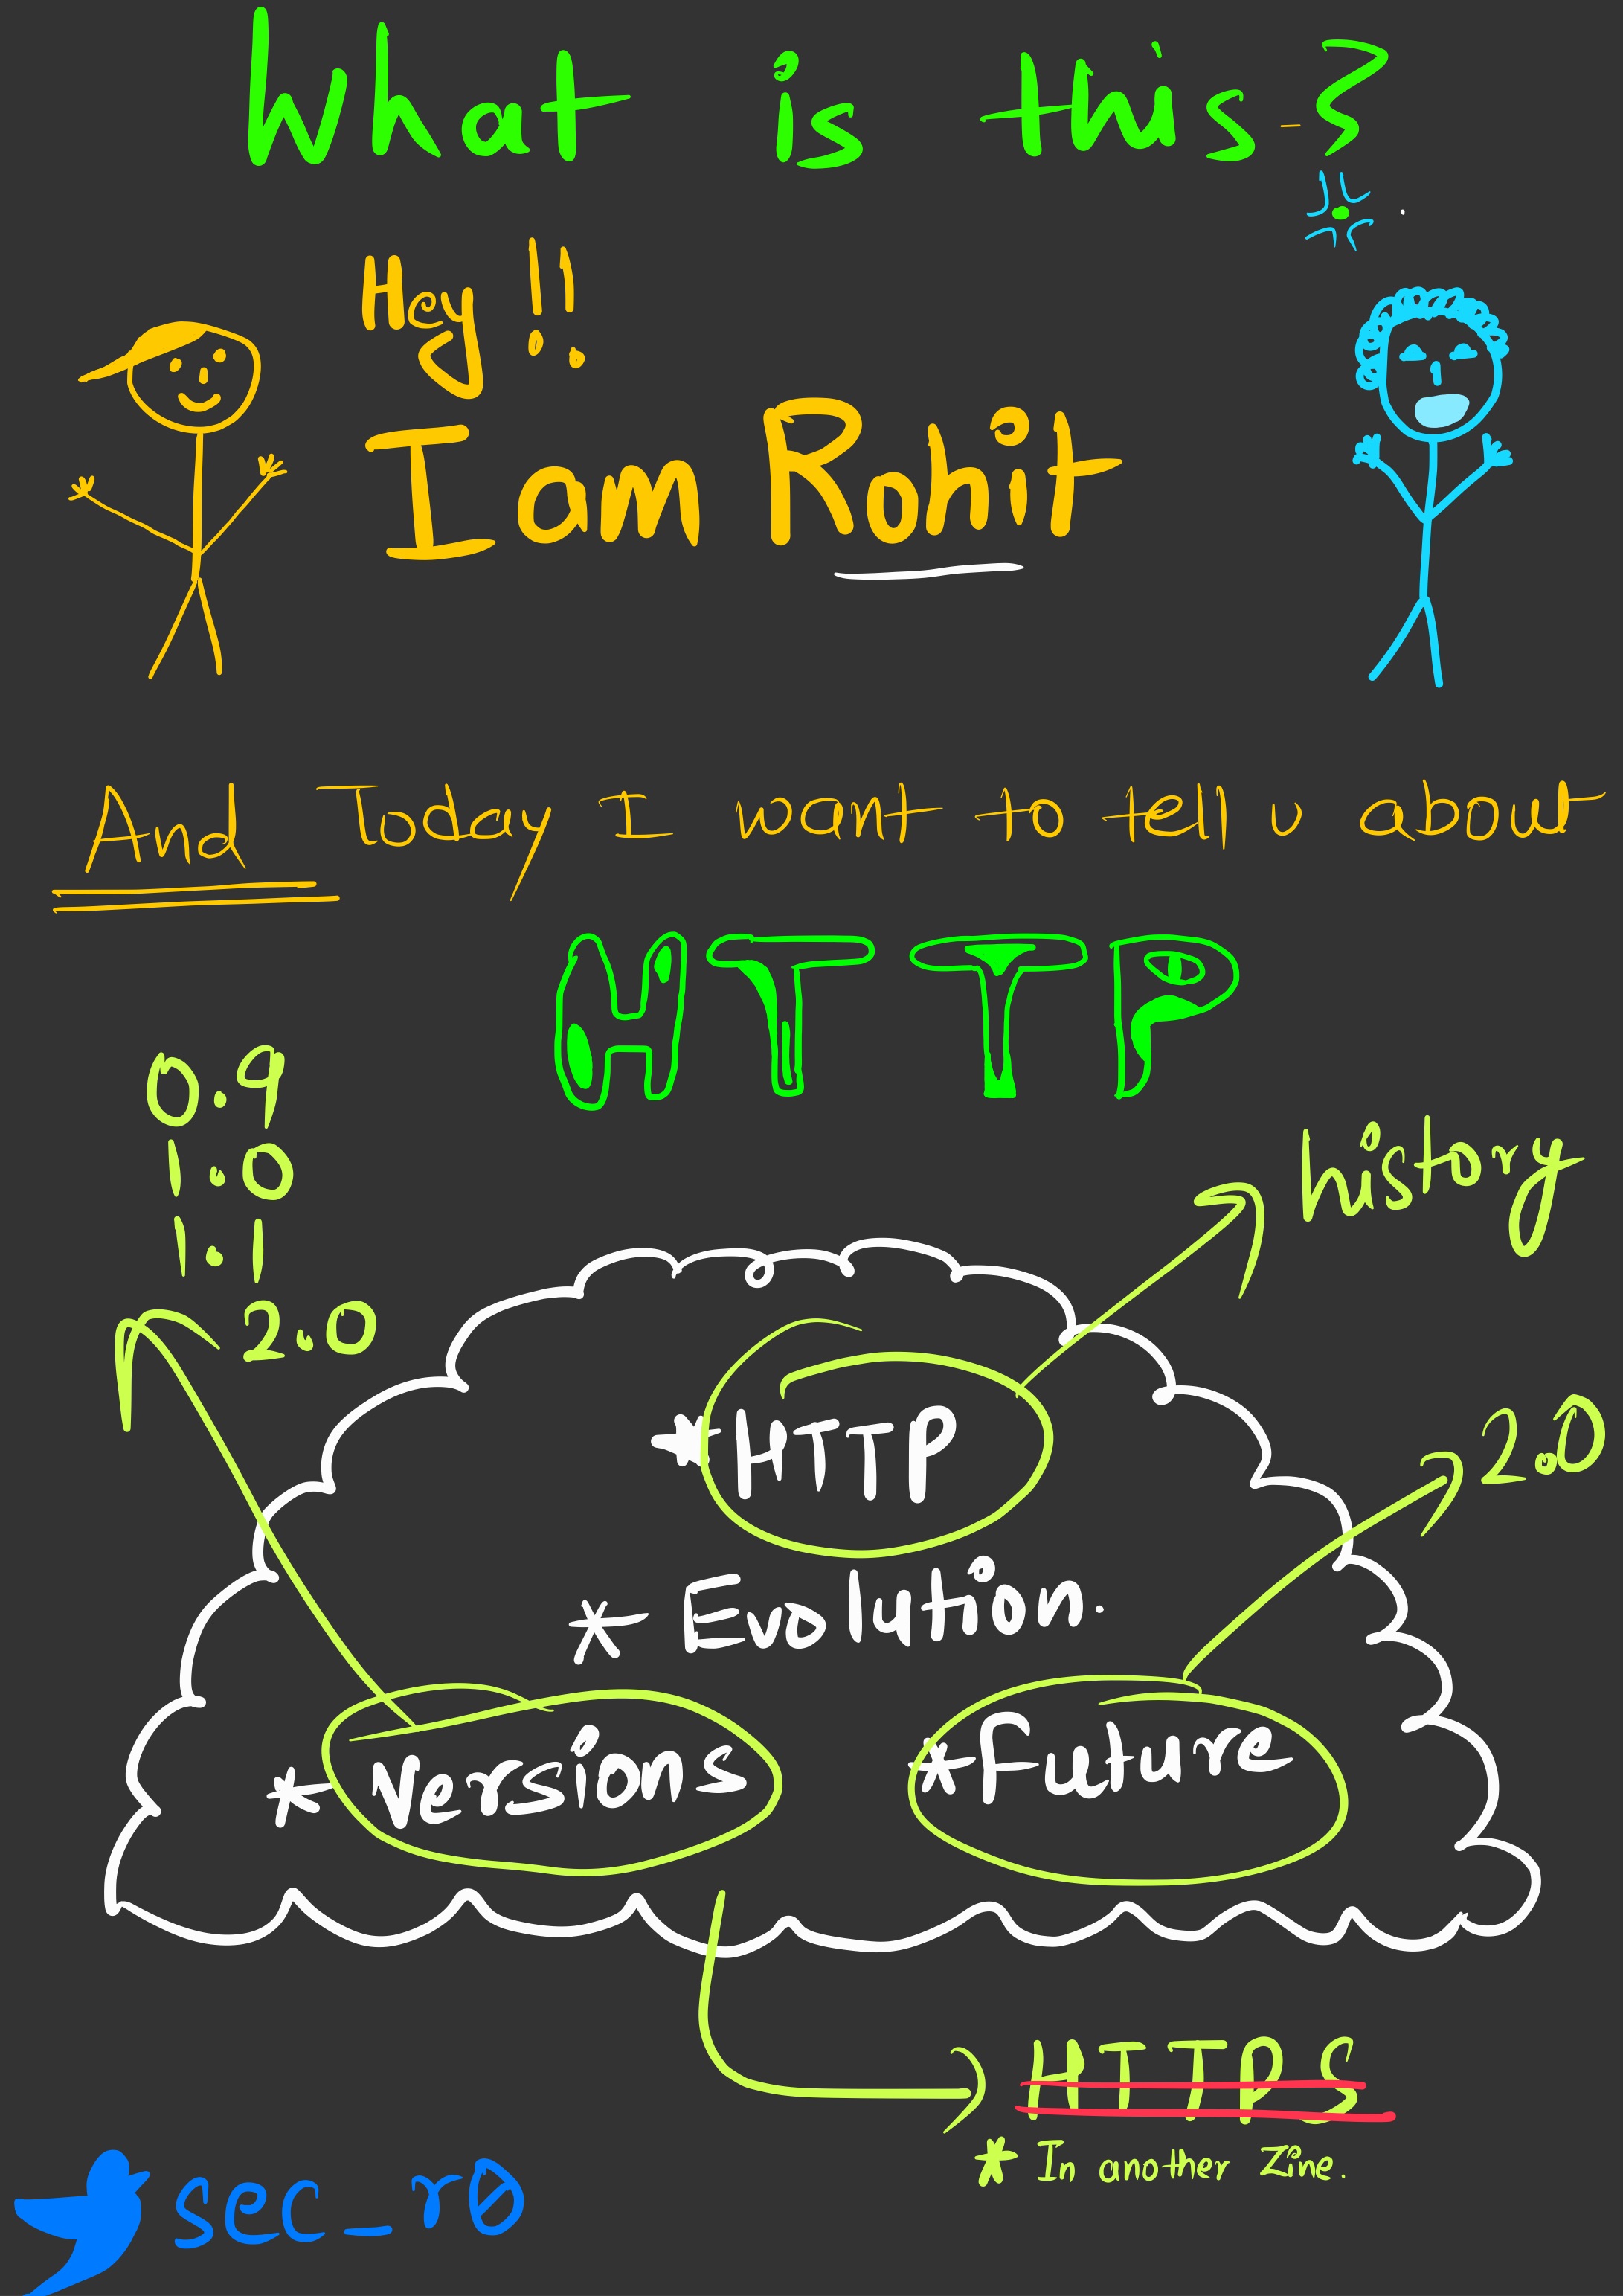 What is this ?
Hey !!
I am Rohit
And Today I want to tell u about
HTTP
0.9
1.0
1.1
2.0
history
* HTTP
2.0
* Evolution.
* Versions
* future
HTTPS
* In another zine.
sec_r0